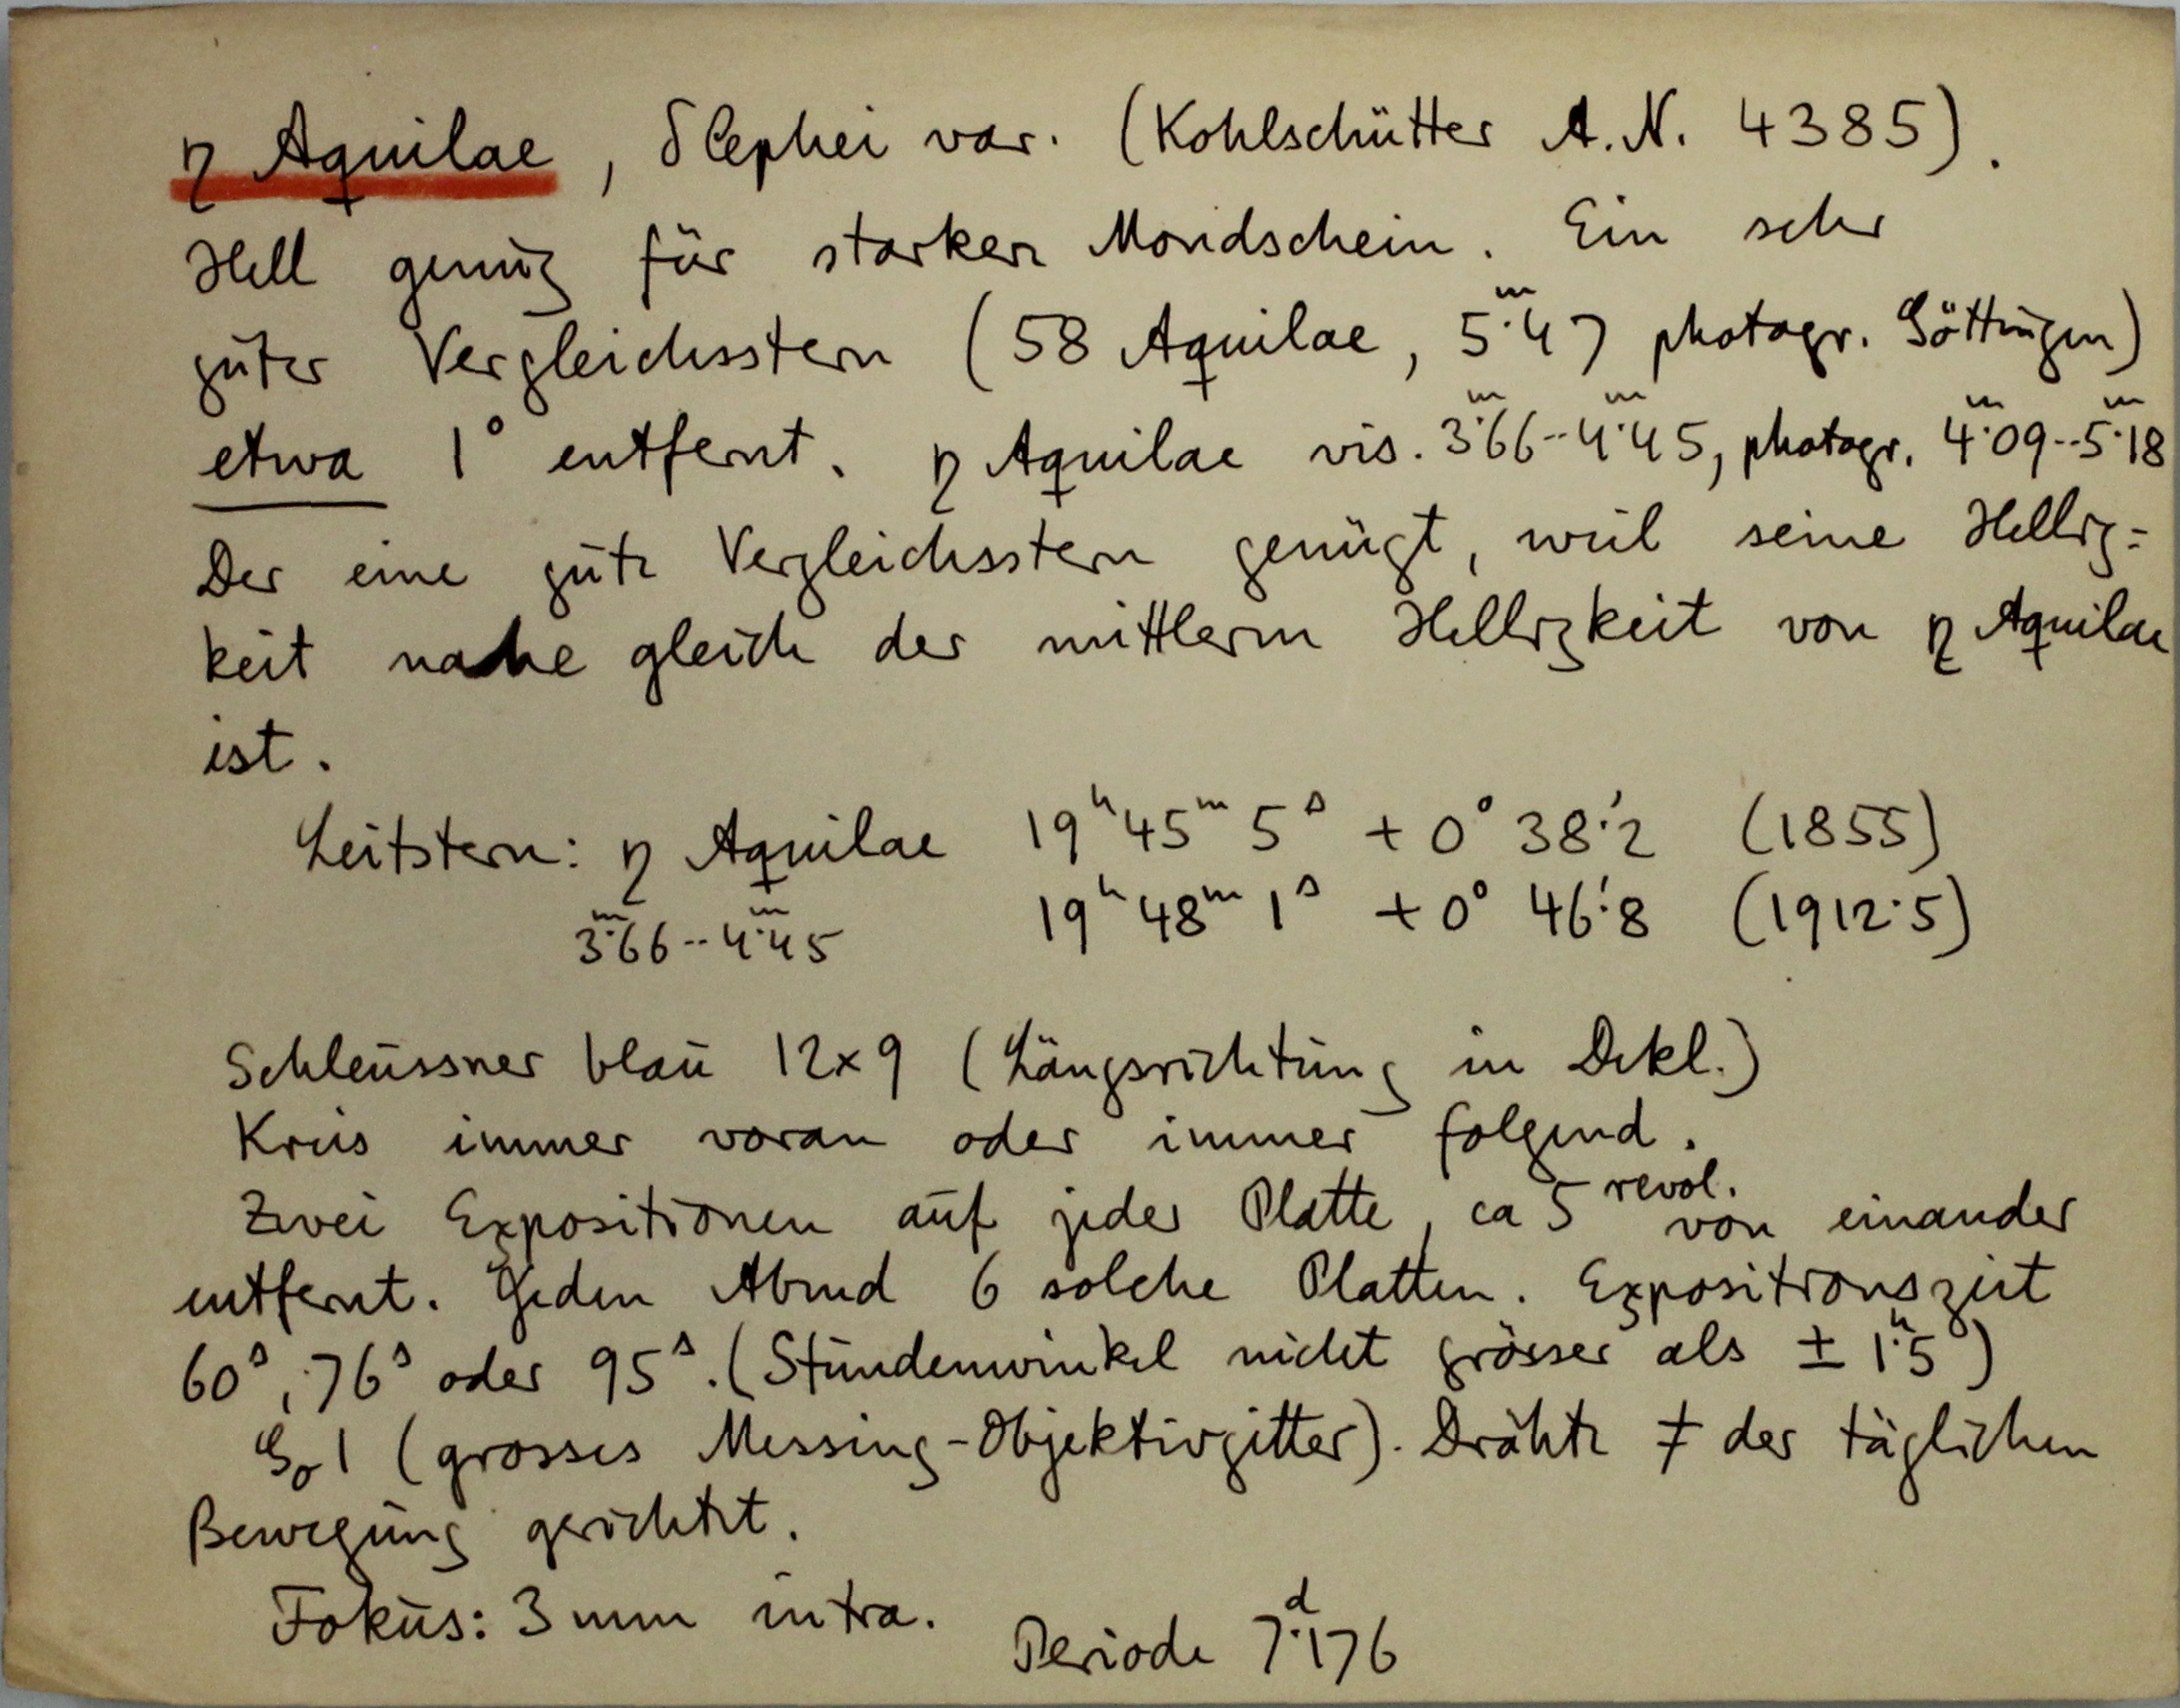 η Aquilae, δ Cephei var. (Kohlschütter A.N. 4385).
Hell genug für starken Mondschein. Ein sehr
guter Vergleichsstern (58 Aquilae, 5ᵐ.47 photogr. Göttingen)
etwa 1° entfernt. η Aquilae vis. 3ᵐ.66--4ᵐ.45, photogr. 4ᵐ.09--5ᵐ.18
Der eine gute Vergleichsstern genügt, weil seine Hellig=
keit nahe gleich der mittlern Helligkeit von η Aquilae
ist.
Leitstern: η Aquilae 19ʰ45ᵐ5ˢ +0°38'.2 (1855)
3ᵐ.66--4ᵐ.45 19ʰ48ᵐ1ˢ +0°46'.8 (1912.5)
Schleussner blau 12x9 (Längsrichtung in Dekl.)
Kreis immer voran oder immer folgend.
Zwei Expositionen auf jeder Platte, ca 5 revol. von einander
entfernt. Jeden Abend 6 solche Platten. Expositionszeit
60ˢ, 76ˢ oder 95ˢ. (Stundenwinkel nicht grösser als ± 1ʰ.5)
1 (grosses Messing-Objektivgitter). Drähte ≠ der täglichen
Bewegung gerichtet.
Fokus: 3 mm intra. Periode 7ᵈ.176